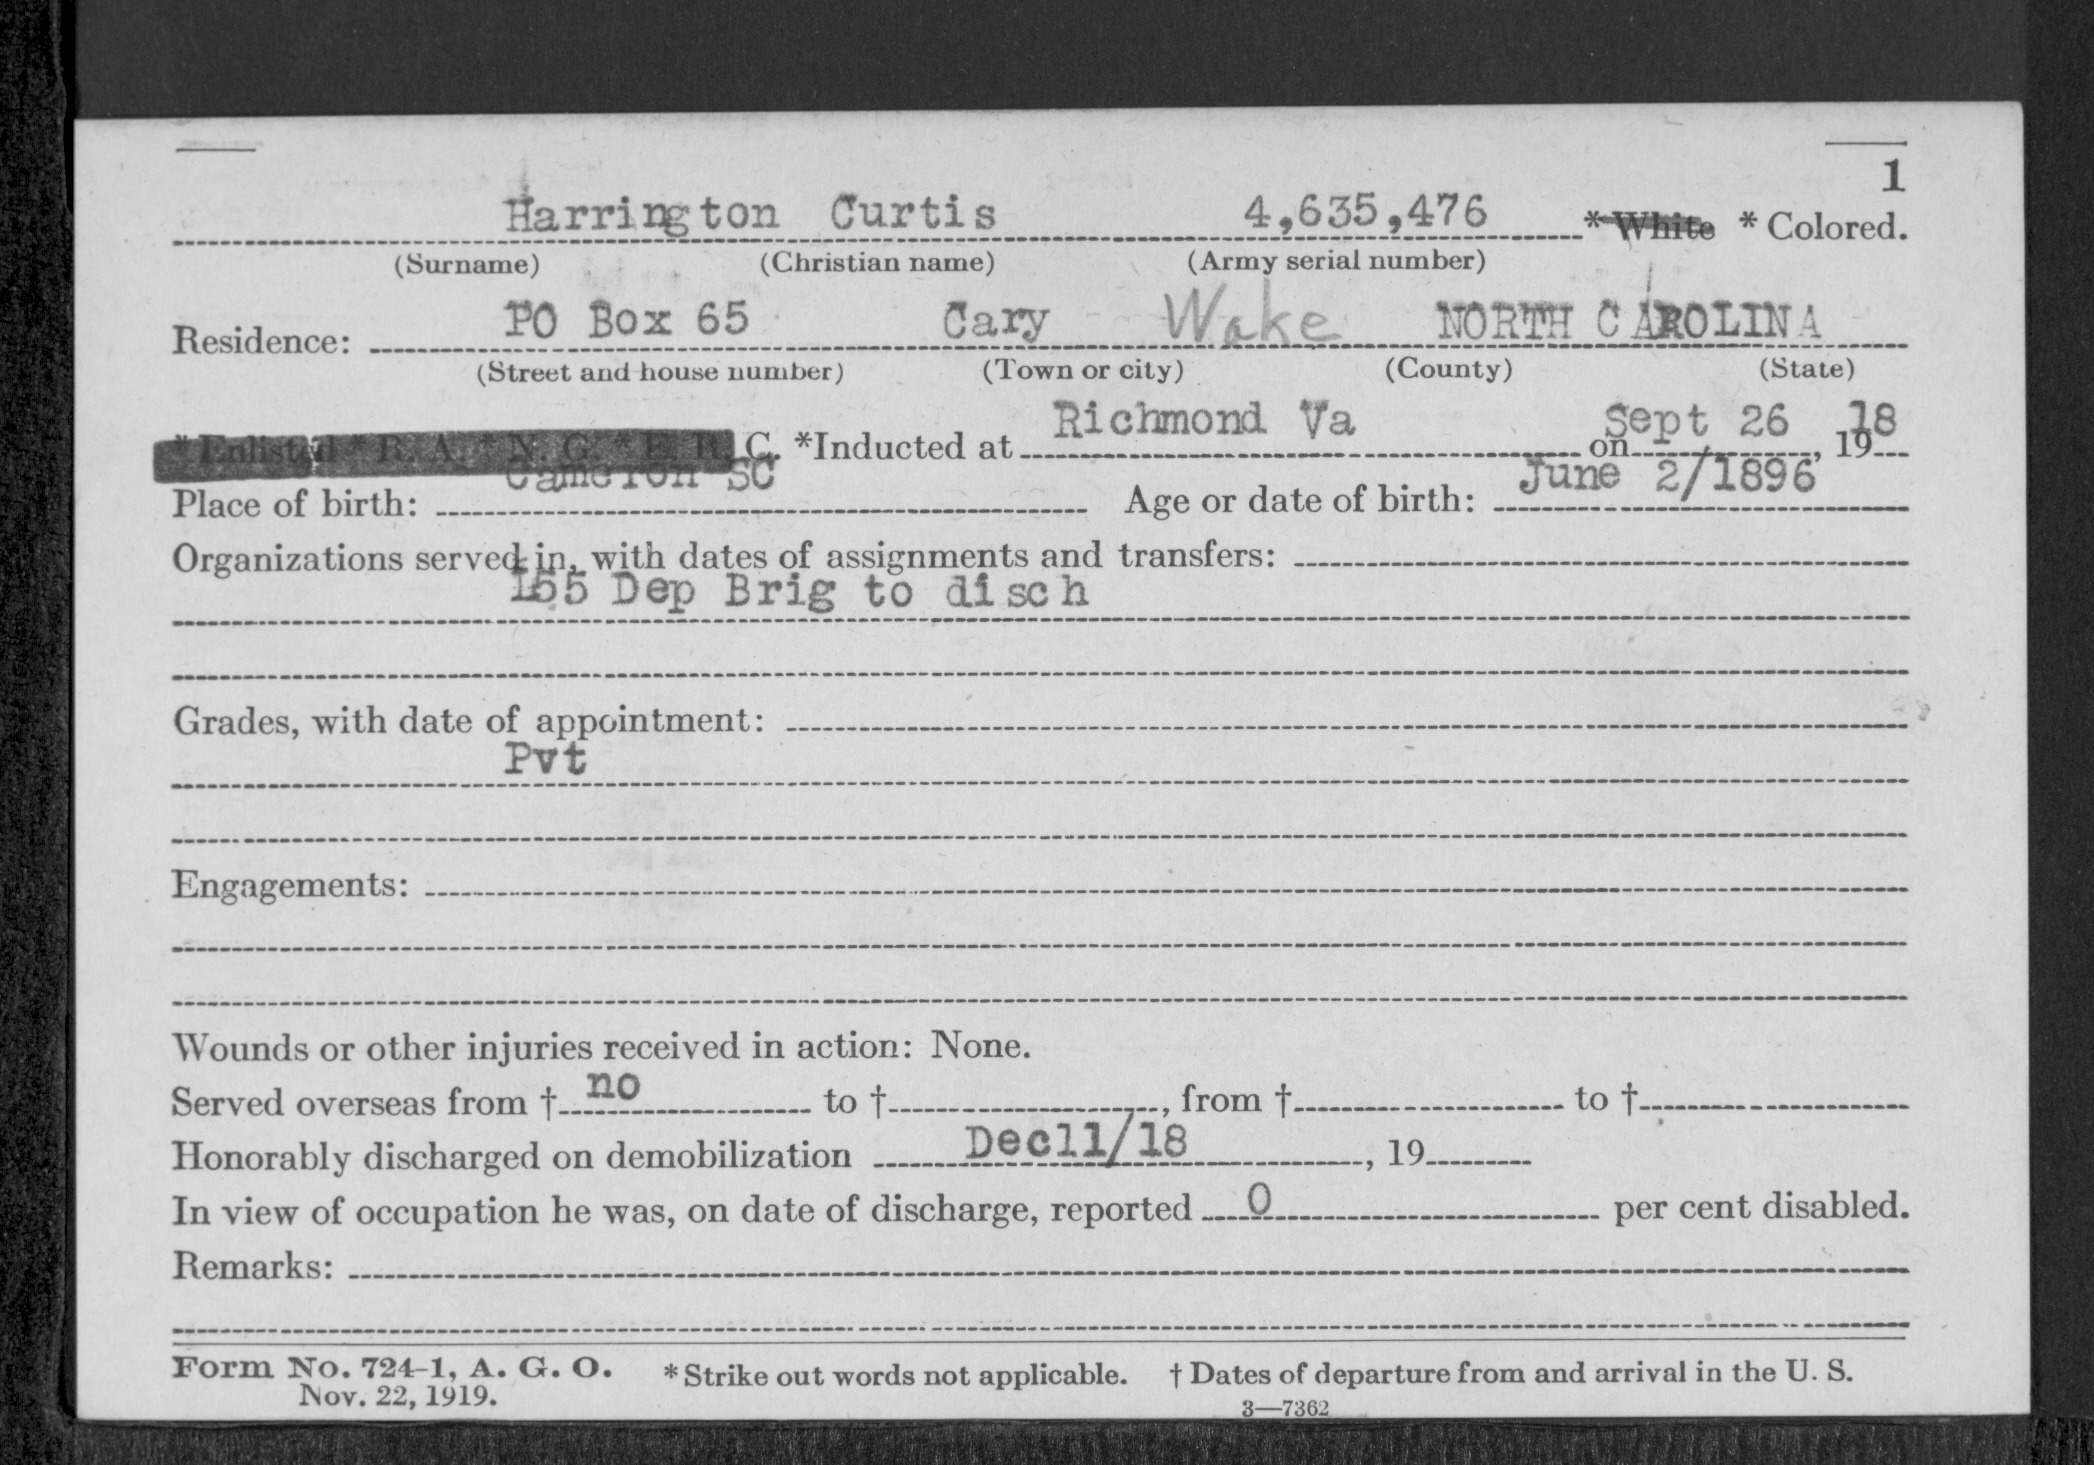 1
Harrington Curtis 4,635,476 * White * Colored.
(Surname) (Christian name) (Army serial number)
Residence: PO Box 65 Cary Wake NORTH CAROLINA
(Street and house number) (Town or city) (County) (State)
* Enlisted * R. A. * N. G. * E. R. C. *Inducted at Richmond Va on Sept 26, 1918
Place of birth: Cameron SC Age or date of birth: June 2/1896
Organizations served in, with dates of assignments and transfers:
155 Dep Brig to disch
Grades, with date of appointment:
Pvt
Engagements:
Wounds or other injuries received in action: None.
Served overseas from † no to †, from † to †
Honorably discharged on demobilization Dec11/18, 19
In view of occupation he was, on date of discharge, reported 0 per cent disabled.
Remarks:
Form No. 724-1, A. G. O. *Strike out words not applicable. † Dates of departure from and arrival in the U. S.
Nov. 22, 1919.
3—7362